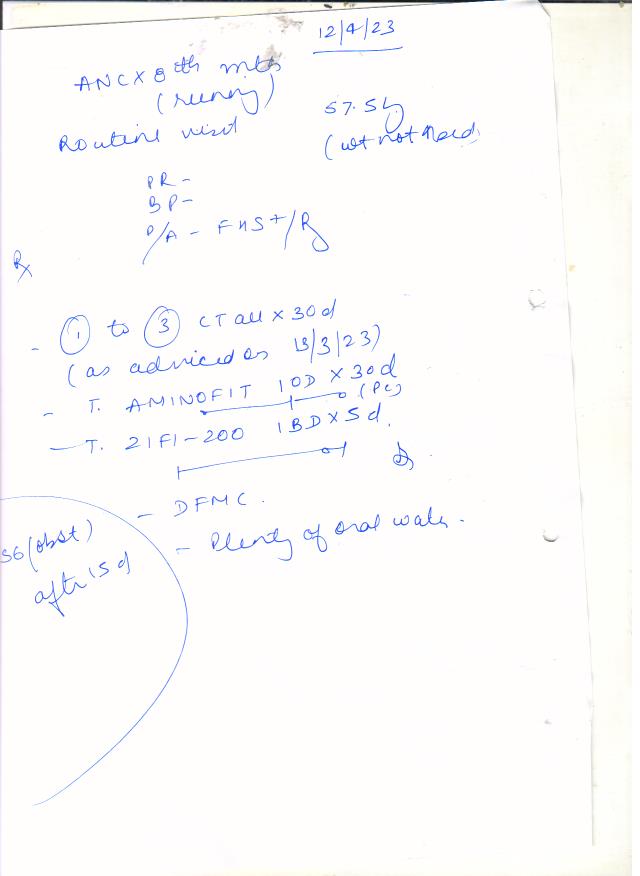 12/4/23
ANC X 8th mth
(running)
57.5 kg
Routine visit
(wt not
PR -
BP -
P/A - FHS +/R
Rx
- ① to ③ CT all x 30d
(as adviced on 13/3/23)
- T. AMINOFIT 1 OD X 30d
(PC)
- T. ZIFI-200 1 BD X 5d.
- DFMC.
(obst)
- Plenty of oral water.
after 15d